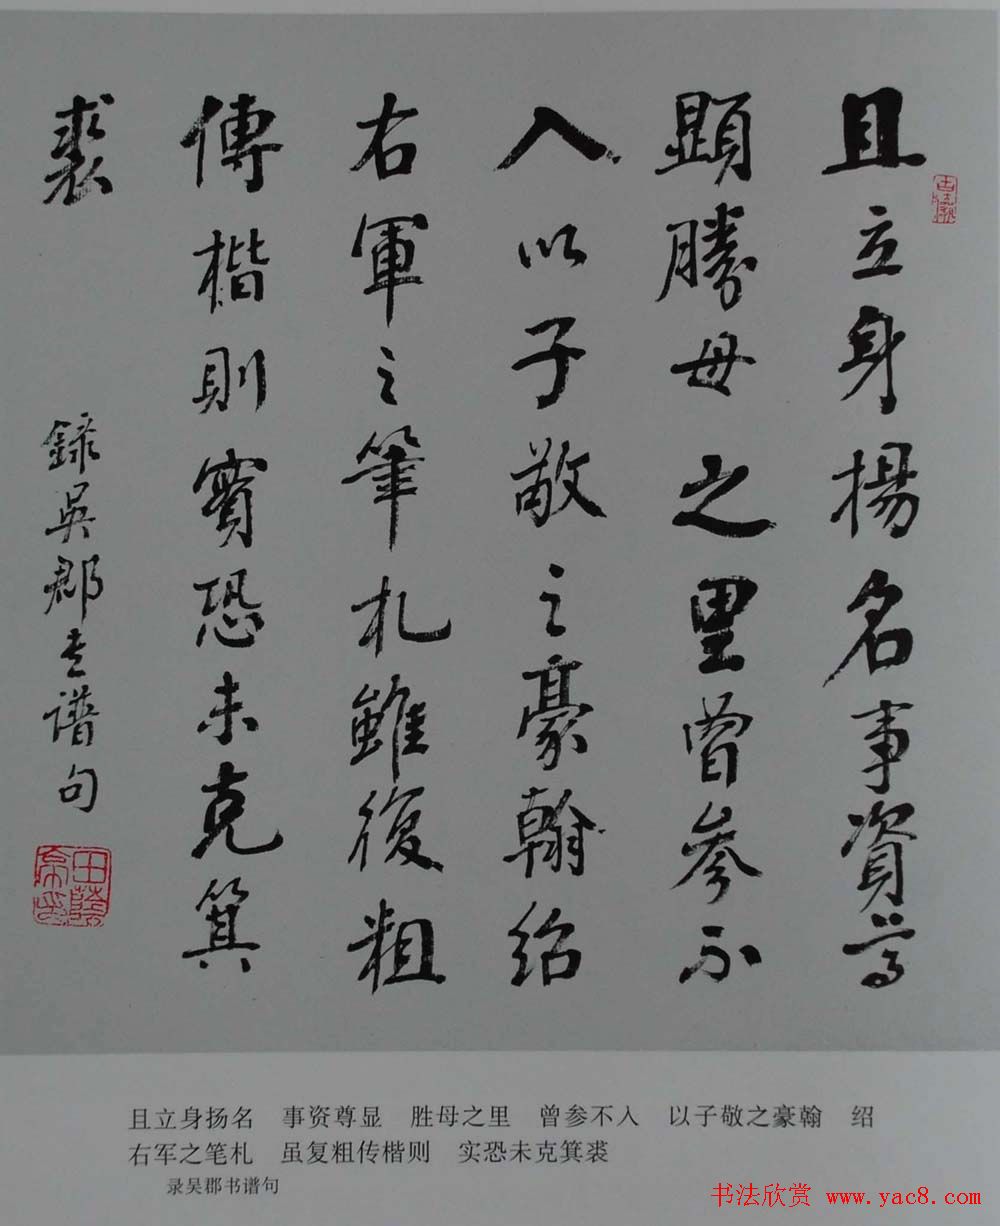 且立身揚名事資尊
顯勝母之里曾參不
入以子敬之豪翰紹
右軍之筆札雖復粗
傳楷則實恐未克箕
裘
錄吳郡书譜句
且立身扬名　事资尊显　胜母之里　曾参不入　以子敬之豪翰　绍
右军之笔札　虽复粗传楷则　实恐未克箕裘
录吴郡书谱句
书法欣赏 www.yac8.com